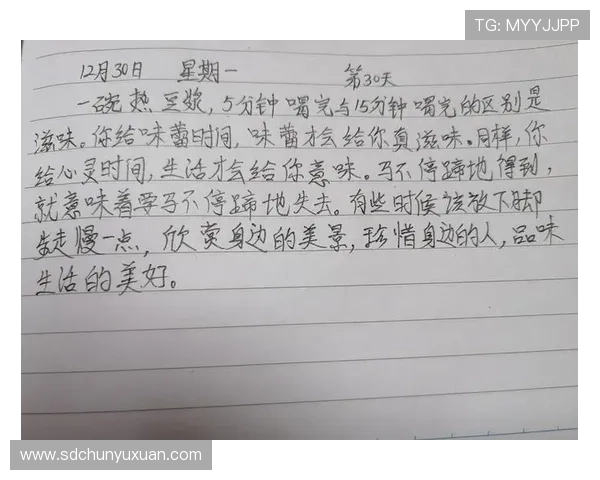 TG: MYYJJPP
12月30日 星期一 第30天
一碗热豆浆,5分钟喝完与15分钟喝完的区别是
滋味。你给味蕾时间,味蕾才会给你真滋味。同样,你
给心灵时间,生活才会给你意味。马不停蹄地得到,
就意味着要马不停蹄地失去。有些时候该放下脚
走慢一点,欣赏身边的美景,珍惜身边的人,品味
生活的美好。
www.sdchunyuxuan.com